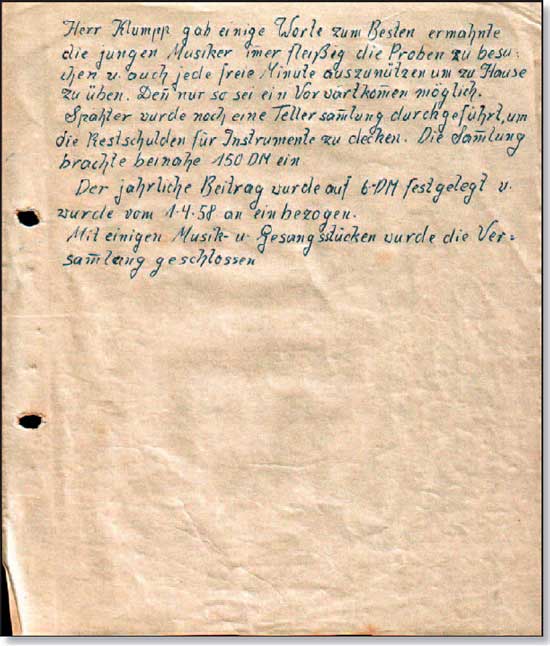 Herr Klumpp gab einige Worte zum Besten ermahnte
die jungen Musiker im̄er fleißig die Proben zu besu-
chen u. auch jede freie Minute auszunützen um zu Hause
zu üben. Den̄ nur so sei ein Vorwärtkom̄en möglich.
Spähter wurde noch eine Tellersam̄lung durchgeführt, um
die Restschulden für Instrumente zu decken. Die Sam̄lung
brachte beinahe 150 DM ein
Der jährliche Beitrag wurde auf 6-DM festgelegt u.
wurde vom 1.4.58 an einbezogen.
Mit einigen Musik- u. Gesangsstücken wurde die Ver=
sam̄lung geschlossen